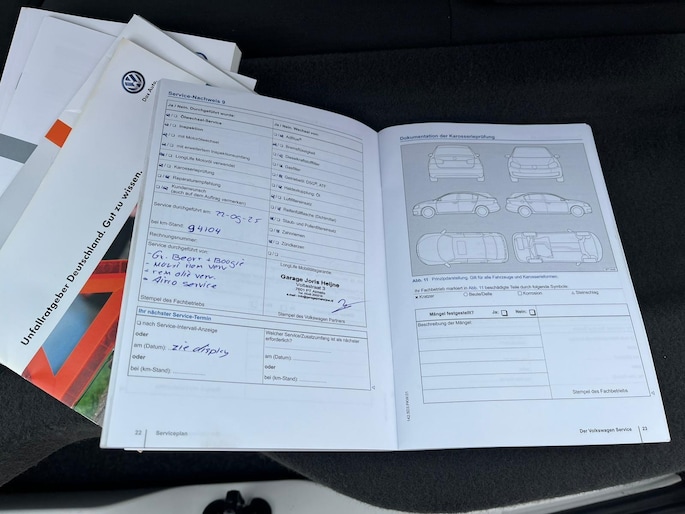 Das Auto.
Unfallratgeber Deutschland. Gut zu wissen.
Service-Nachweis 9
Ja / Nein, Durchgeführt wurde
Ölwechsel-Service
Inspektion
mit Motorölwechsel
mit erweitertem Inspektionsumfang
LongLife Motoröl verwendet
Karosserieprüfung
Reparaturempfehlung
Kundenwunsch
(auch auf dem Auftrag vermerken)
Service durchgeführt am: 22-05-25
bei km-Stand: 94104
Rechnungsnummer:
Service durchgeführt von:
- Gr. Beort + Boogie
- rem olie ver.
- Airo service
Stempel des Fachbetriebs
Ja / Nein, Wechsel von:
Dieselkraftstofffilter
Getriebeöl: DSG®, ATF
Haldexkupplung, Öl
Luftfiltereinsatz
Staub- und Pollenfiltereinsatz
Zahnriemen
Zündkerzen
LongLife Mobilitätsgarantie
Garage Joris Heijne
Stempel des Volkswagen Partners
Ihr nächster Service-Termin
nach Service-Intervall-Anzeige
oder
am (Datum): zie display
oder
bei (km-Stand):
Welcher Service/Zusatzumfang ist als nächster
erforderlich?
am (Datum):
oder
bei (km-Stand):
22 Serviceplan
Dokumentation der Karosserieprüfung
Abb. 11 Prinzipdarstellung. Gilt für alle Fahrzeuge und Karosserieformen.
Ihr Fachbetrieb markiert in Abb. 11 beschädigte Teile durch folgende Symbole:
Kratzer Beule/Delle Korrosion Steinschlag
Mängel festgestellt? Ja: Nein:
Beschreibung der Mängel:
Stempel des Fachbetriebs
Der Volkswagen Service 23